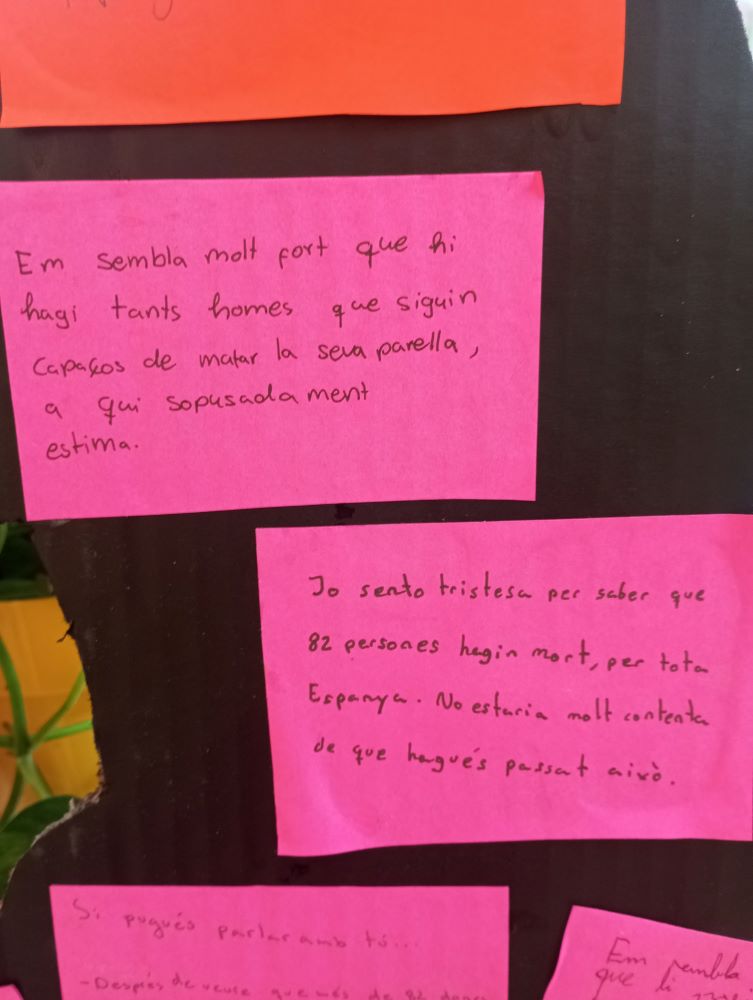 Em sembla molt fort que hi
hagi tants homes que siguin
capaços de matar la seva parella,
a qui sopusadament
estima.
Jo sento tristesa per saber que
82 persones hagin mort, per tota
Espanya. No estaria molt contenta
de que hagués passat això.
Si pugués parlar amb tú...
- Després de veure que més de 82 dones
Em sembla
que li